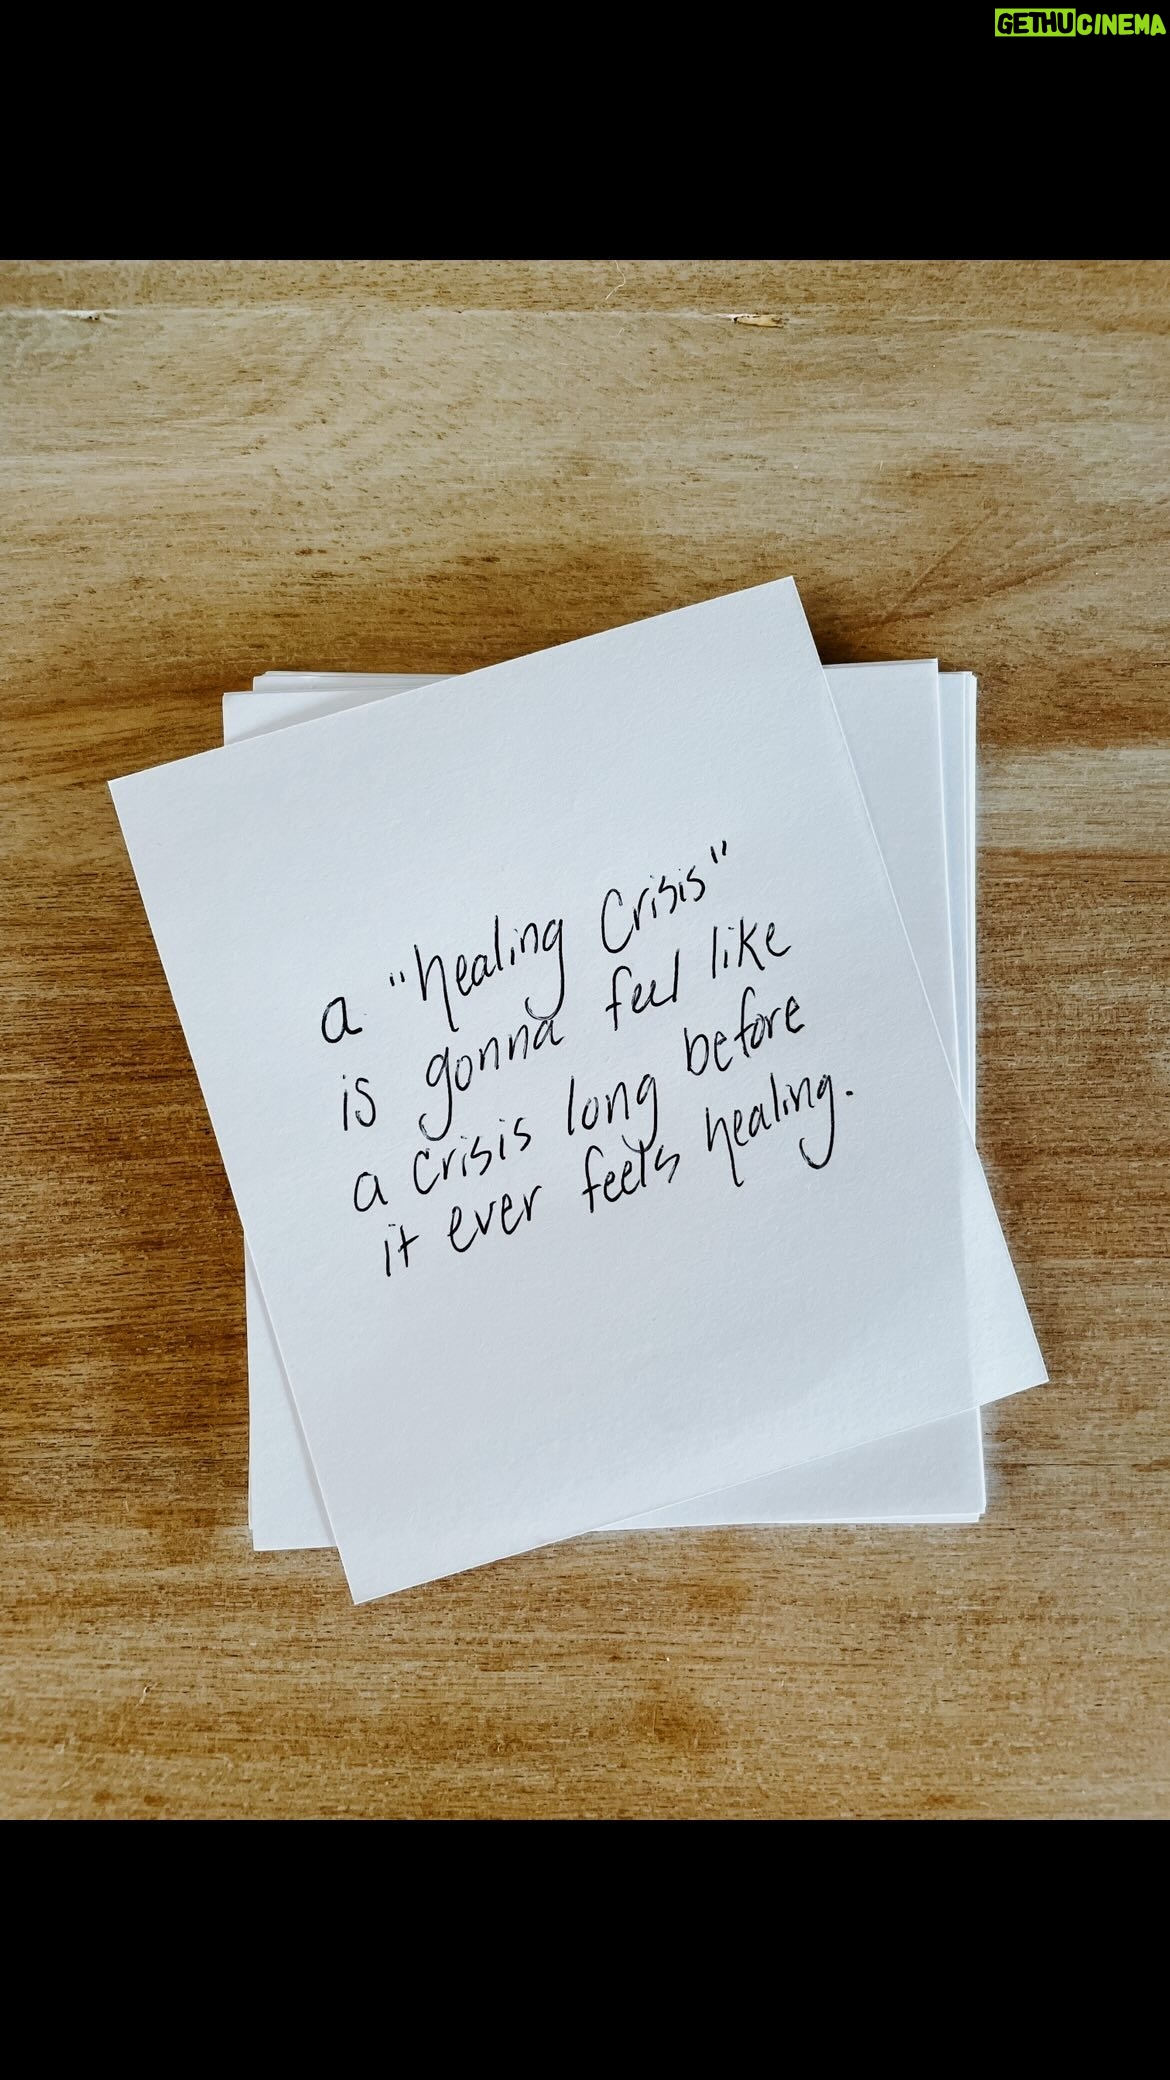 GETHUCINEMA
a "healing Crisis"
is gonna feel like
a crisis long before
it ever feels healing.